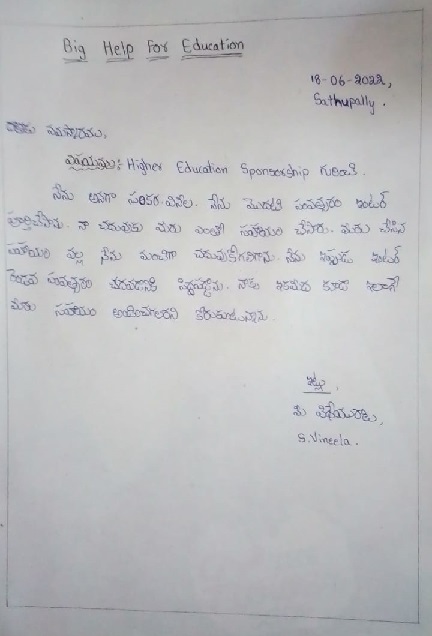 Big Help For Education
18-06-2022,
Sathupally.
నమస్కారము,
విషయము: Higher Education Sponsorship గురించి.
నేను అనగా సంకర. వినీల. నేను మొదటి సంవత్సరం ఇంటర్
పూర్తిచేసాను. నా చదువుకు మీరు ఎంతో సహాయం చేసారు. మీరు చేసిన
సహాయం వల్ల నేను మంచిగా చదువుకోగలిగాను. నేను ఇప్పుడు ఇంటర్
రెండవ సంవత్సరం చదవడానికి సిద్ధమయ్యాను. నాకు ఇకమీద కూడా ఇలాగే
మీరు సహాయం అందించాలని కోరుకుంటున్నాను.
ఇట్లు,
మీ విధేయురాలు,
S. Vineela.